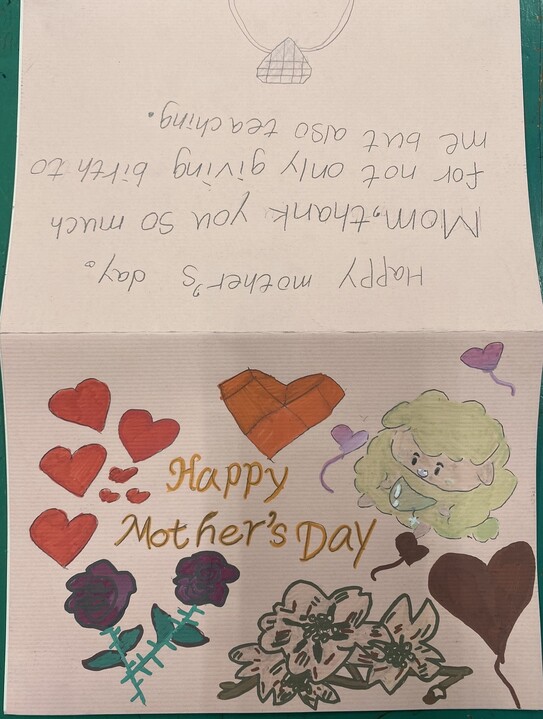 Happy mother's day.
Mom, thank you so much
for not only giving birth to
me but also teaching.
Happy
Mother's Day